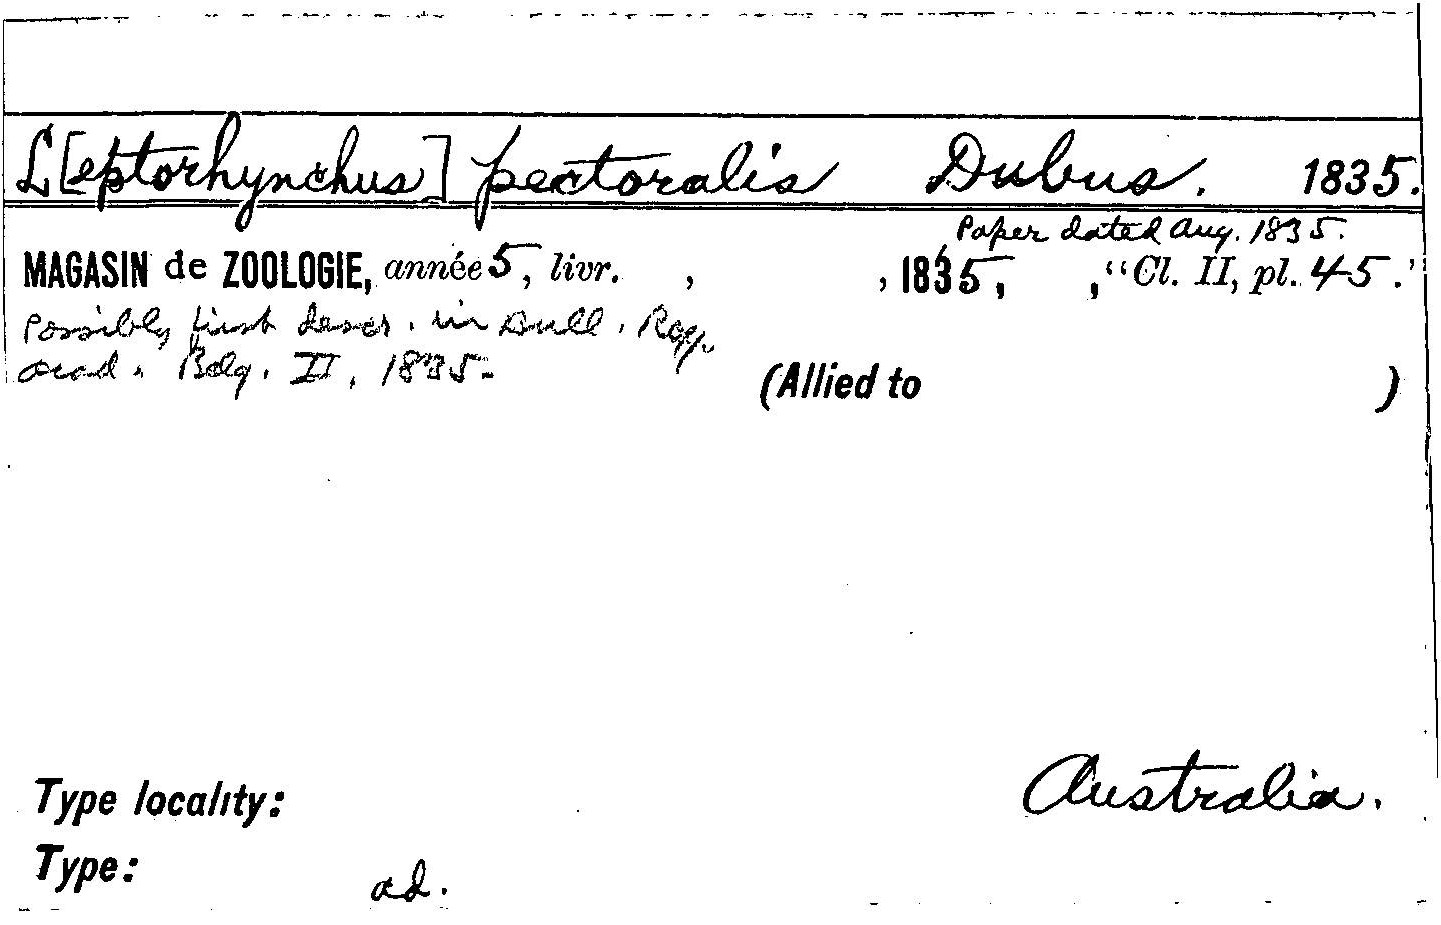 L[eptorhynchus] pectoralis Dubus. 1835.
Paper dated Aug. 1835.
MAGASIN de ZOOLOGIE, année 5, livr. , , 1835, , "Cl. II, pl. 45."
Possibly first descr. in Bull. Roy.
Acad. Belg. II, 1835.
(Allied to )
Australia.
Type locality:
Type: ad.